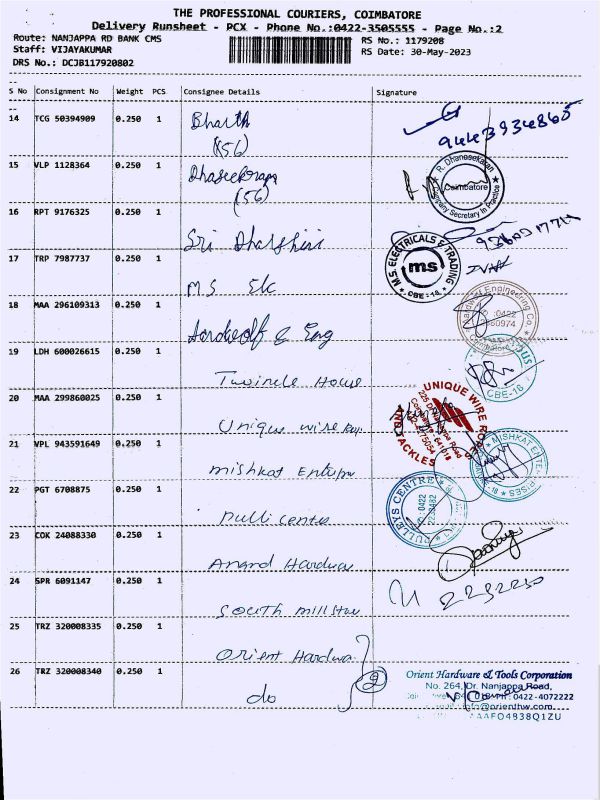 THE PROFESSIONAL COURIERS, COIMBATORE
Delivery Runsheet - PCX - Phone No.:0422-3505555 - Page No.:2
Route: NANJAPPA RD BANK CMS
RS No.: 1179208
Staff: VIJAYAKUMAR
RS Date: 30-May-2023
DRS No.: DCJB117920802
S No Consignment No Weight PCS Consignee Details Signature
14 TCG 50394909 0.250 1 Bharth
(56)
9443934865
15 VLP 1128364 0.250 1
(56)
R. Dhanasekaran
Coimbatore
Company Secretary In Practice
16 RPT 9176325 0.250 1 Sri Dharshini
17 TRP 7987737 0.250 1 MS Elc
M.S. ELECTRICALS & TRADING
ms
CBE - 18
18 MAA 296109313 0.250 1 & Eng
Engineering Co.
:0422
Coimbatore
19 LDH 600026615 0.250 1 Twincle House
CBE-18
20 MAA 299860025 0.250 1 Unique wire
UNIQUE WIRE ROPES
AND TACKLES
21 VPL 943591649 0.250 1 mishkat Enterp
MISHKAT ENTERPRISES
22 PGT 6708875 0.250 1 Pulli Centre
PULLEYS CENTRE
23 COK 24088330 0.250 1 Anand Hardwa
24 SPR 6091147 0.250 1 South mill Stor
2232250
25 TRZ 320008335 0.250 1 Orient Hardwa
26 TRZ 320008340 0.250 1 do
2
Orient Hardware & Tools Corporation
No. 264, Dr. Nanjappa Road,
Ph: 0422-4072222
@orienthw.com
AAFO4838Q1ZU